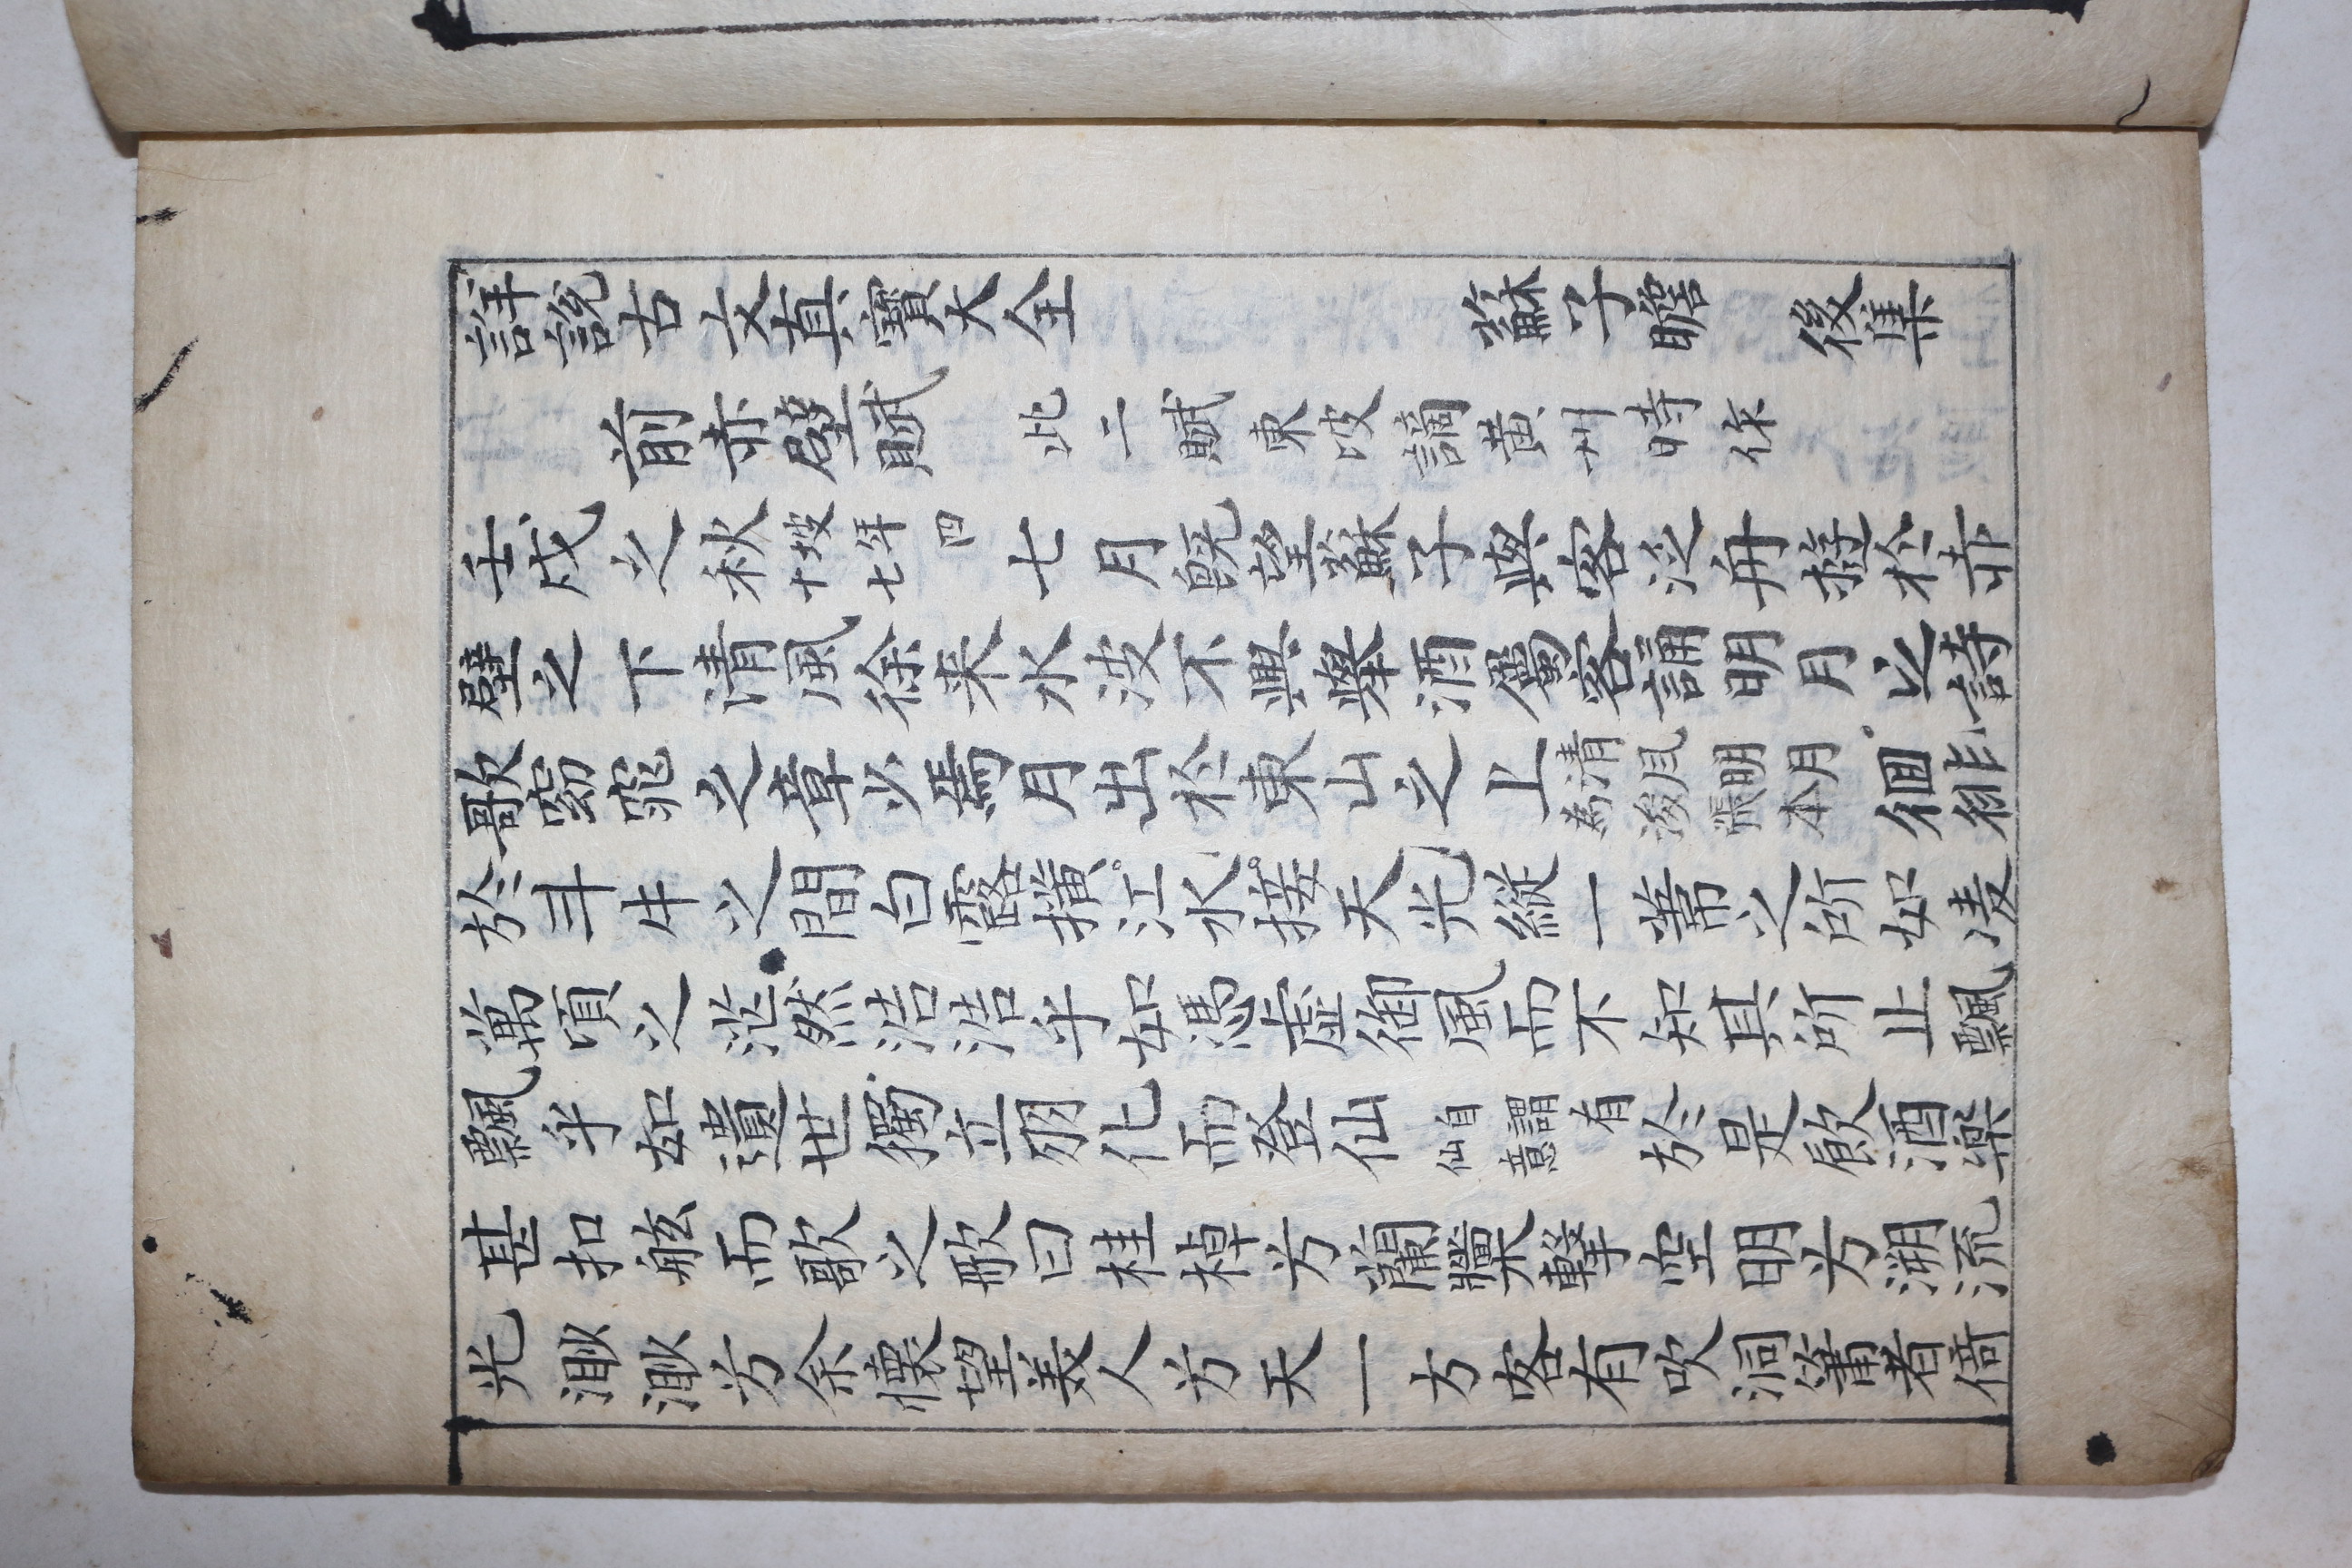 詳說古文真寶大全 蘇子瞻 後集
前赤壁賦 此二賦東坡謫黃州時作
壬戌之秋坡年四十七七月旣望蘇子與客泛舟遊於赤
壁之下清風徐来水波不興擧酒屬客誦明月之詩
歌窈窕之章少焉月出於東山之上為後張本清風明月徘徊
於斗牛之間白露横江水接天光縦一葦之所如凌
萬頃之茫然浩浩乎如馮虛御風而不知其所止飄
飄乎如遺世獨立羽化而登仙自謂有仙意於是飲酒樂
甚扣舷而歌之歌曰桂棹兮蘭槳擊空明兮溯流
光渺渺兮余懷望美人兮天一方客有吹洞簫者倚